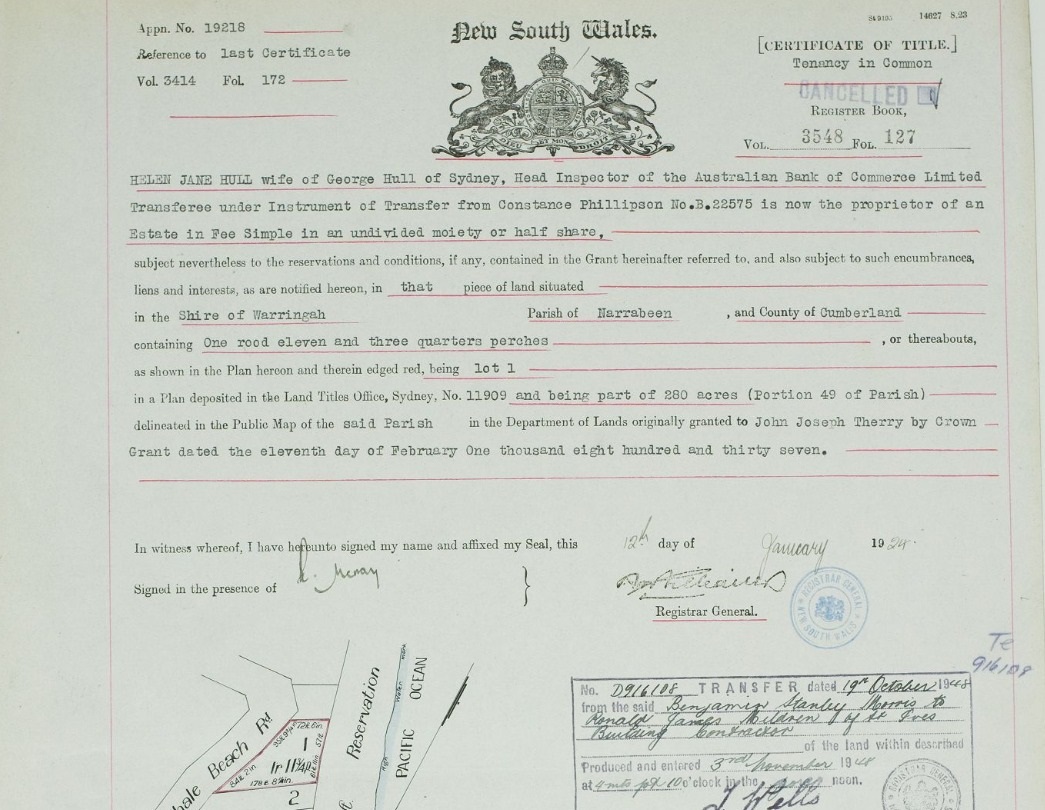 Appn. No. 19218
Reference to last Certificate
Vol. 3414 Fol. 172
New South Wales.
14627 8.23
[CERTIFICATE OF TITLE.]
Tenancy in Common
CANCELLED
REGISTER BOOK,
VOL. 3548 FOL. 127
HELEN JANE HULL wife of George Hull of Sydney, Head Inspector of the Australian Bank of Commerce Limited
Transferee under Instrument of Transfer from Constance Phillipson No.B.22575 is now the proprietor of an
Estate in Fee Simple in an undivided moiety or half share,
subject nevertheless to the reservations and conditions, if any, contained in the Grant hereinafter referred to, and also subject to such encumbrances,
liens and interests, as are notified hereon, in that piece of land situated
in the Shire of Warringah Parish of Narrabeen , and County of Cumberland
containing One rood eleven and three quarters perches , or thereabouts,
as shown in the Plan hereon and therein edged red, being lot 1
in a Plan deposited in the Land Titles Office, Sydney, No. 11909 and being part of 280 acres (Portion 49 of Parish)
delineated in the Public Map of the said Parish in the Department of Lands originally granted to John Joseph Therry by Crown
Grant dated the eleventh day of February One thousand eight hundred and thirty seven.
In witness whereof, I have hereunto signed my name and affixed my Seal, this 12th day of January 1924.
Signed in the presence of
Registrar General.
REGISTRAR GENERAL
NEW SOUTH WALES
Te
916108
ale Beach Rd
Reservation
PACIFIC OCEAN
High Water Mark
1
2
No. D916108 TRANSFER dated 19th October 1948
from the said Benjamin Stanley Morris to
Ronald James Mildren of St Ives
Building Contractor
of the land within described
Produced and entered 3rd November 1948
at 4 mts pt 10 o'clock in the noon.
J Wells
REGISTRAR GENERAL